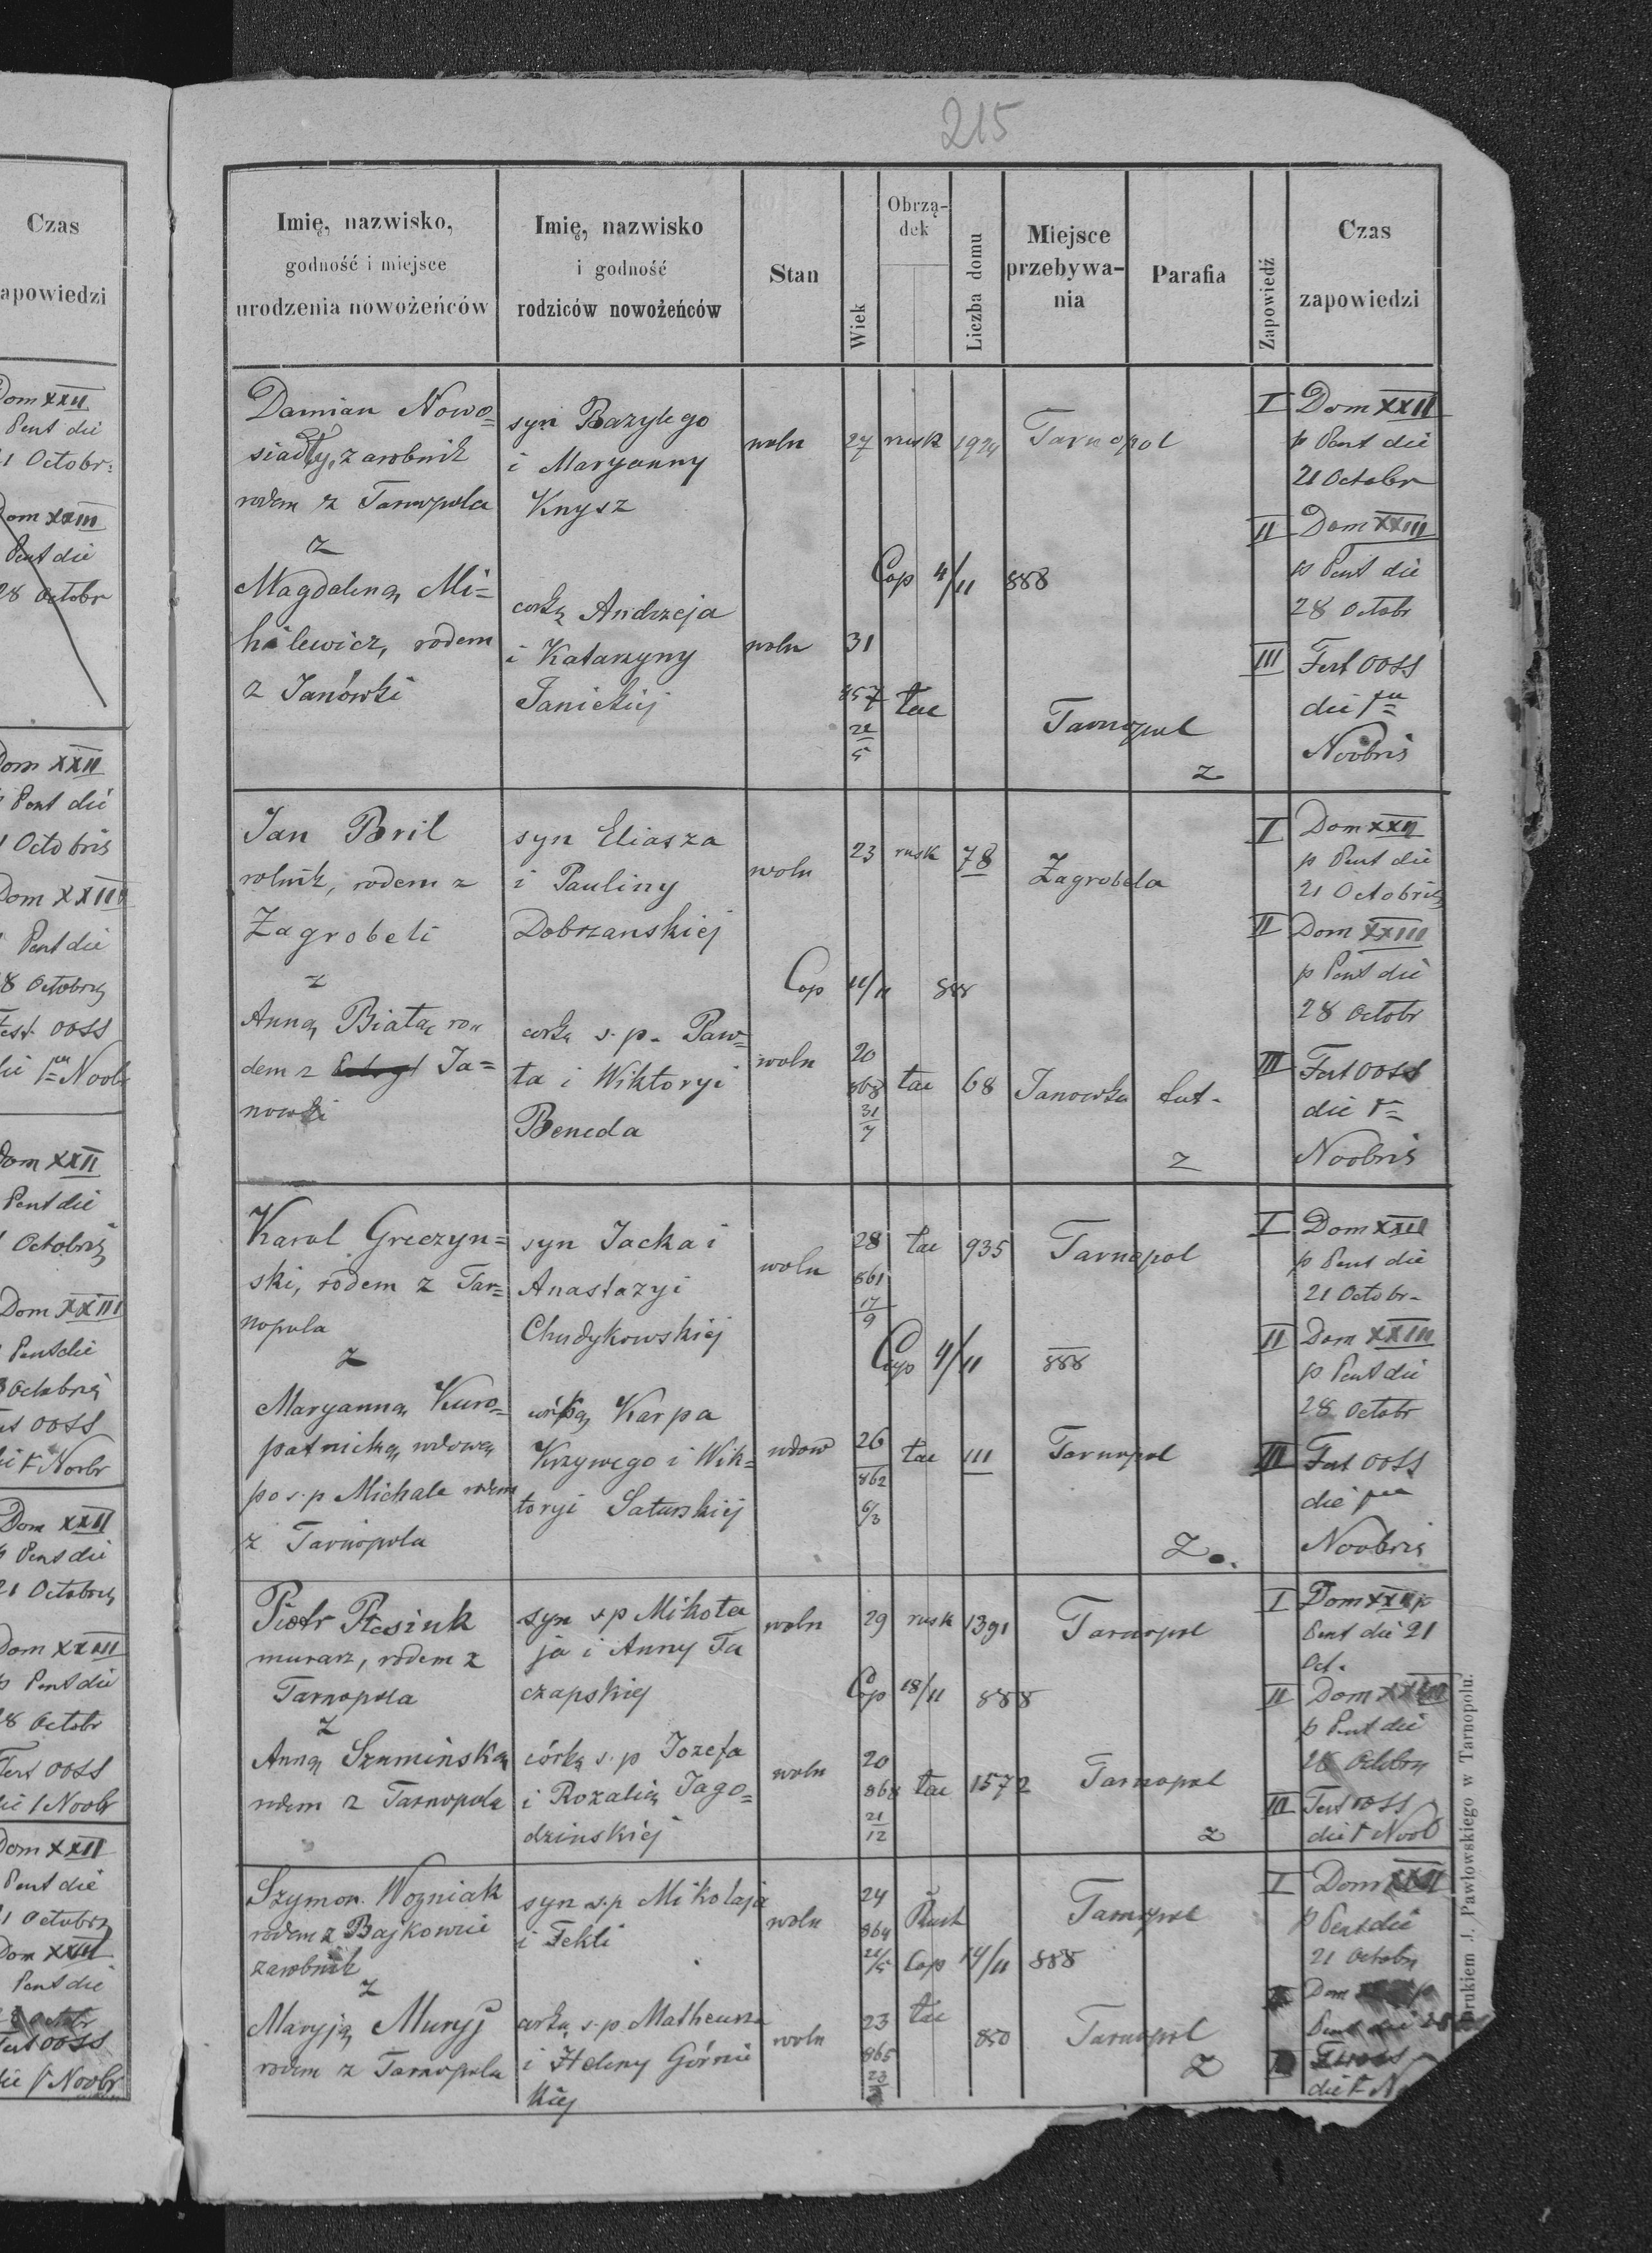 215
Czas
zapowiedzi
Dom XXII
Pent die
21 Octobr:
Dom XXIII
Pent die
28 Octobr
Dom XXII
p Pent die
Octobris
Dom XXIII
Pent die
28 Octobris
Fest OOSS
Noobr
Dom XXII
Pent die
Octobris
Dom XXIII
Pent die
Octobris
OOSS
Noobr
Dom XXII
p Pent die
21 Octobris
Dom XXIII
p Pent die
28 Octobr
Fest OOSS
Noobr
Dom XXII
Pent die
21 Octobris
Dom XXIII
Pent die
Fest OOSS
Noobr
Imię, nazwisko,
godność i miejsce
urodzenia nowożeńców
Imię, nazwisko
i godność
rodziców nowożeńców
Stan
Wiek
Obrzą-
dek
Liczba domu
Miejsce
przebywa-
nia
Parafia
Zapowiedź
Czas
zapowiedzi
Damian Nowo=
siadły, zarobnik
rodem z Tarnopola
z
Magdaleną Mi=
halewicz, rodem
z Janówki
syn Bazylego
i Maryanny
Knysz
corką Andrzeja
i Katarzyny
Janickiej
woln 27 rusk 1924 Tarnopol
Cop 4/11 888
woln 31
857 łac
22
5
Tarnopol
z
I Dom XXII
p Pent die
21 Octobr
II Dom XXIII
p Pent die
28 Octobr
III Fest OOSS
die 1ma
Noobris
Jan Bril
rolnik, rodem z
Zagrobeli
z
Anną Białą ro=
dem z Ja=
nowki
syn Eliasza
i Pauliny
Dobrzanskiej
corką s. p. Paw=
ła i Wiktoryi
Beneda
woln 23 rusk 78 Zagrobela
Cop 11/11 888
woln 20
868
31
7
łac 68 Janowka lat.
z
I Dom XXII
p Pent die
21 Octobris
II Dom XXIII
p Pent die
28 Octobr
III Fest OOSS
die 1ma
Noobris
Karol Greczyn=
ski, rodem z Tar=
nopola
z
Maryanną Kuro=
patnicką wdową
po s. p Michale rodem
z Tarnopola
syn Jacka i
Anastazyi
Chudykowskiej
córką Karpa
Krzywego i Wik=
toryi Saturskiej
woln 28
861
17
9
łac 935 Tarnopol
Cop 4/11 888
wdow 26
862
6/3
łac 111 Tarnopol
Z.
I Dom XXII
p Pent die
21 Octobr.
II Dom XXIII
p Pent die
28 Octobr
III Fest OOSS
die 1ma
Noobris
Piotr Ptasiuk
murarz, rodem z
Tarnopola
z
Anną Szumińską
rodem z Tarnopola
syn s p Mikoła
ja i Anny Ta
czapskiej
córką s. p Jozefa
i Rozalią Jago=
dzinskiej
woln 29 rusk 1391 Tarnopol
Cop 18/11 888
woln 20
868
21
12
łac 1572 Tarnopol
z
I Dom XXII p
Pent die 21
Oct.
II Dom XXIII
p Pent die
28 Octobr
III Fest OOSS
die 1 Noob
Szymon Wozniak
rodem z Bajkowiec
zarobnik
z
Maryją Muryj
rodem z Tarnopola
syn s.p Mikołaja
i Tekli
corką s. p Matheusza
i Heleny Górnic
kiej
woln 24
864
21/5
Rusk Tarnopol
Cop 14/11 888
woln 23
865
23
łac 850 Tarnopol
Z
I Dom XXII
p Pent die
21 Octobr
II Dom
Pent die 28
die 1 N
Drukiem J. Pawłowskiego w Tarnopolu.